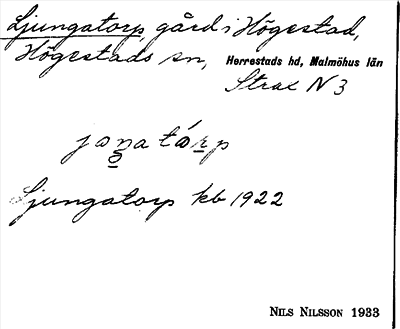 Ljungatorp, gård i Högestad,
Högestads sn, Herrestads hd, Malmöhus län
Strax N 3
jo̱n̥a tó̱r̠p
Ljungatorp kb 1922
NILS NILSSON 1933